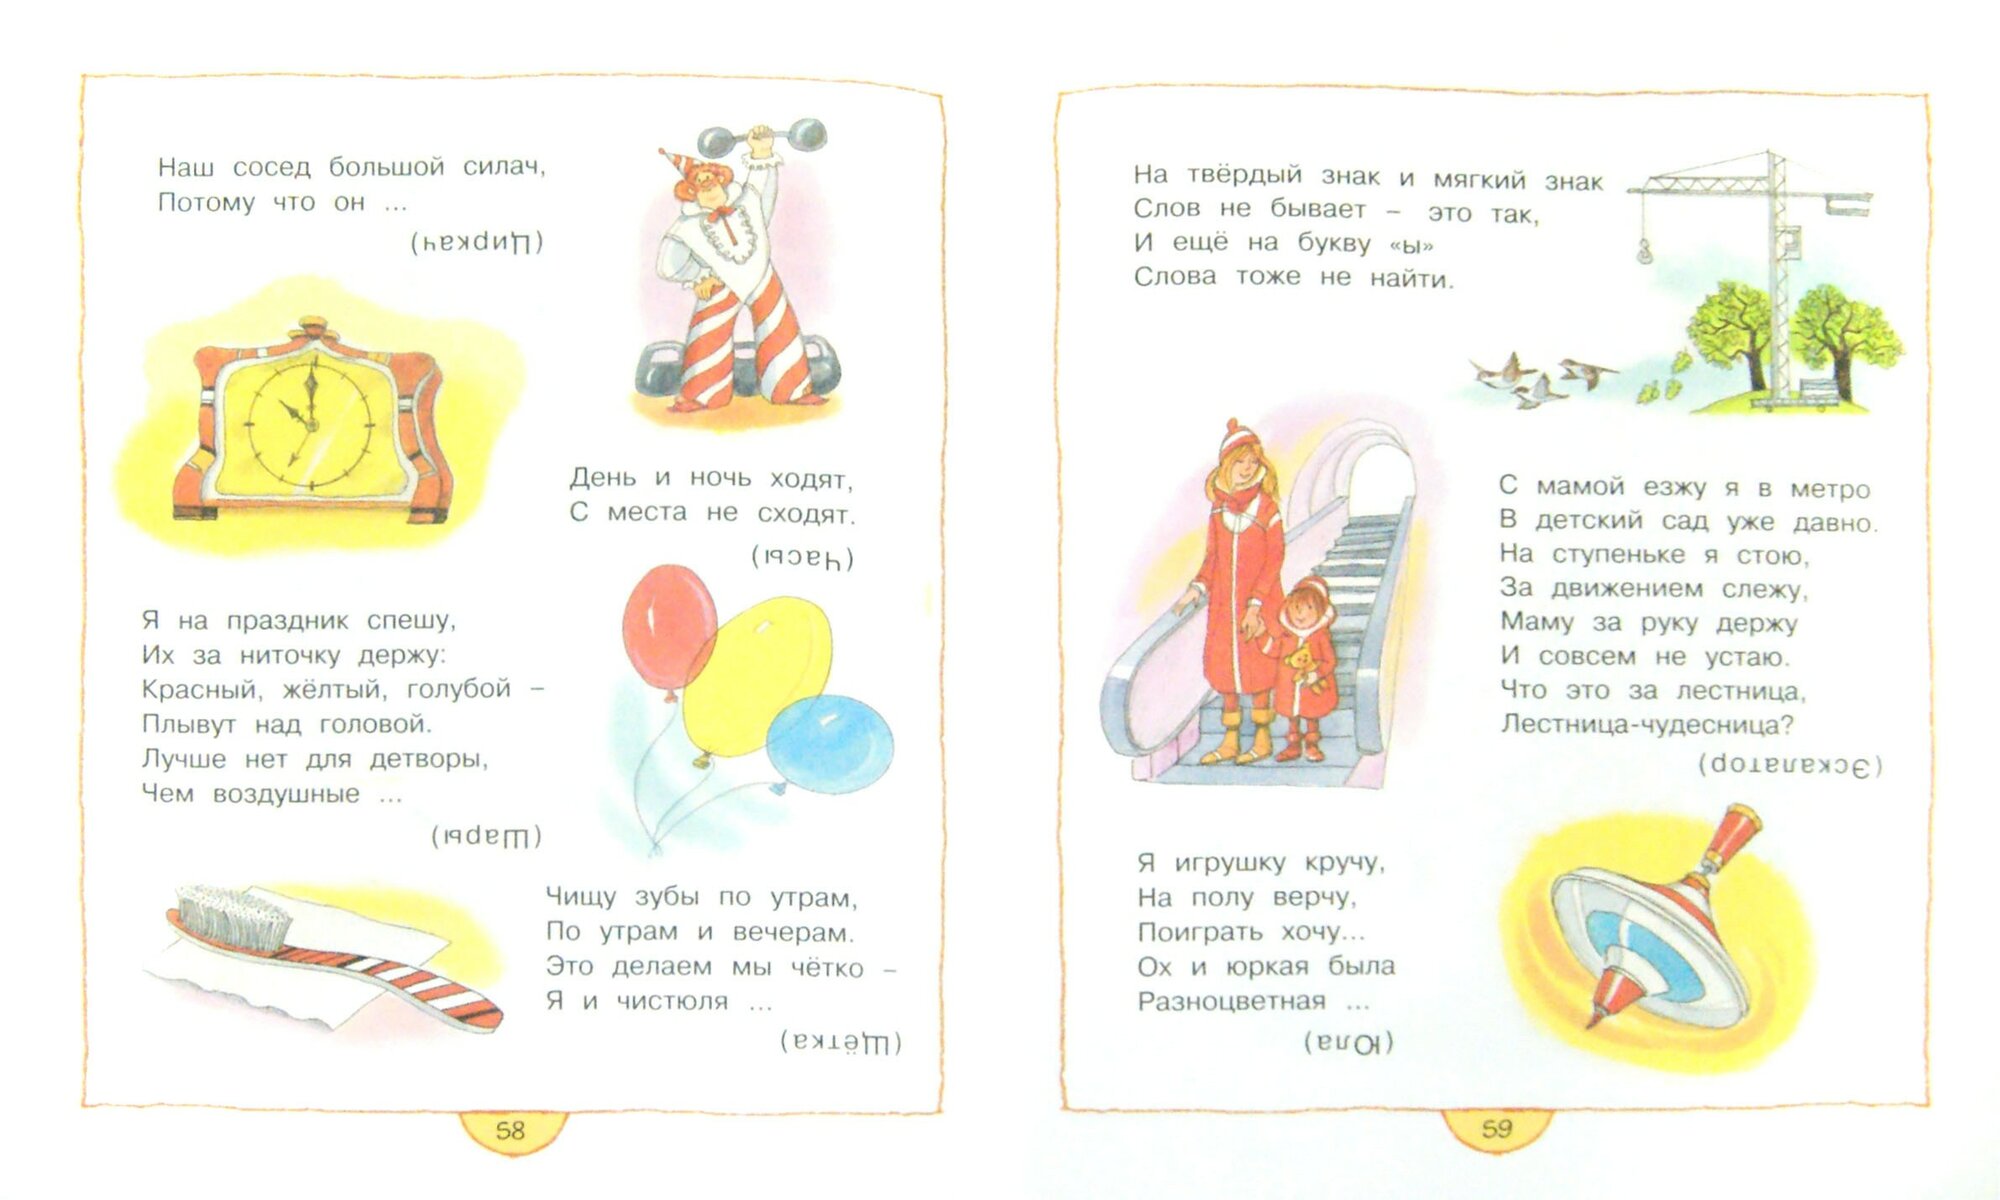 Наш сосед большой силач,
Потому что он ...
(Циркач)
День и ночь ходят,
С места не сходят.
(Часы)
Я на праздник спешу,
Их за ниточку держу:
Красный, жёлтый, голубой –
Плывут над головой.
Лучше нет для детворы,
Чем воздушные ...
(Шары)
Чищу зубы по утрам,
По утрам и вечерам.
Это делаем мы чётко –
Я и чистюля ...
(Щётка)
58
На твёрдый знак и мягкий знак
Слов не бывает – это так,
И ещё на букву «ы»
Слова тоже не найти.
С мамой езжу я в метро
В детский сад уже давно.
На ступеньке я стою,
За движением слежу,
Маму за руку держу
И совсем не устаю.
Что это за лестница,
Лестница-чудесница?
(Эскалатор)
Я игрушку кручу,
На полу верчу,
Поиграть хочу...
Ох и юркая была
Разноцветная ...
(Юла)
59